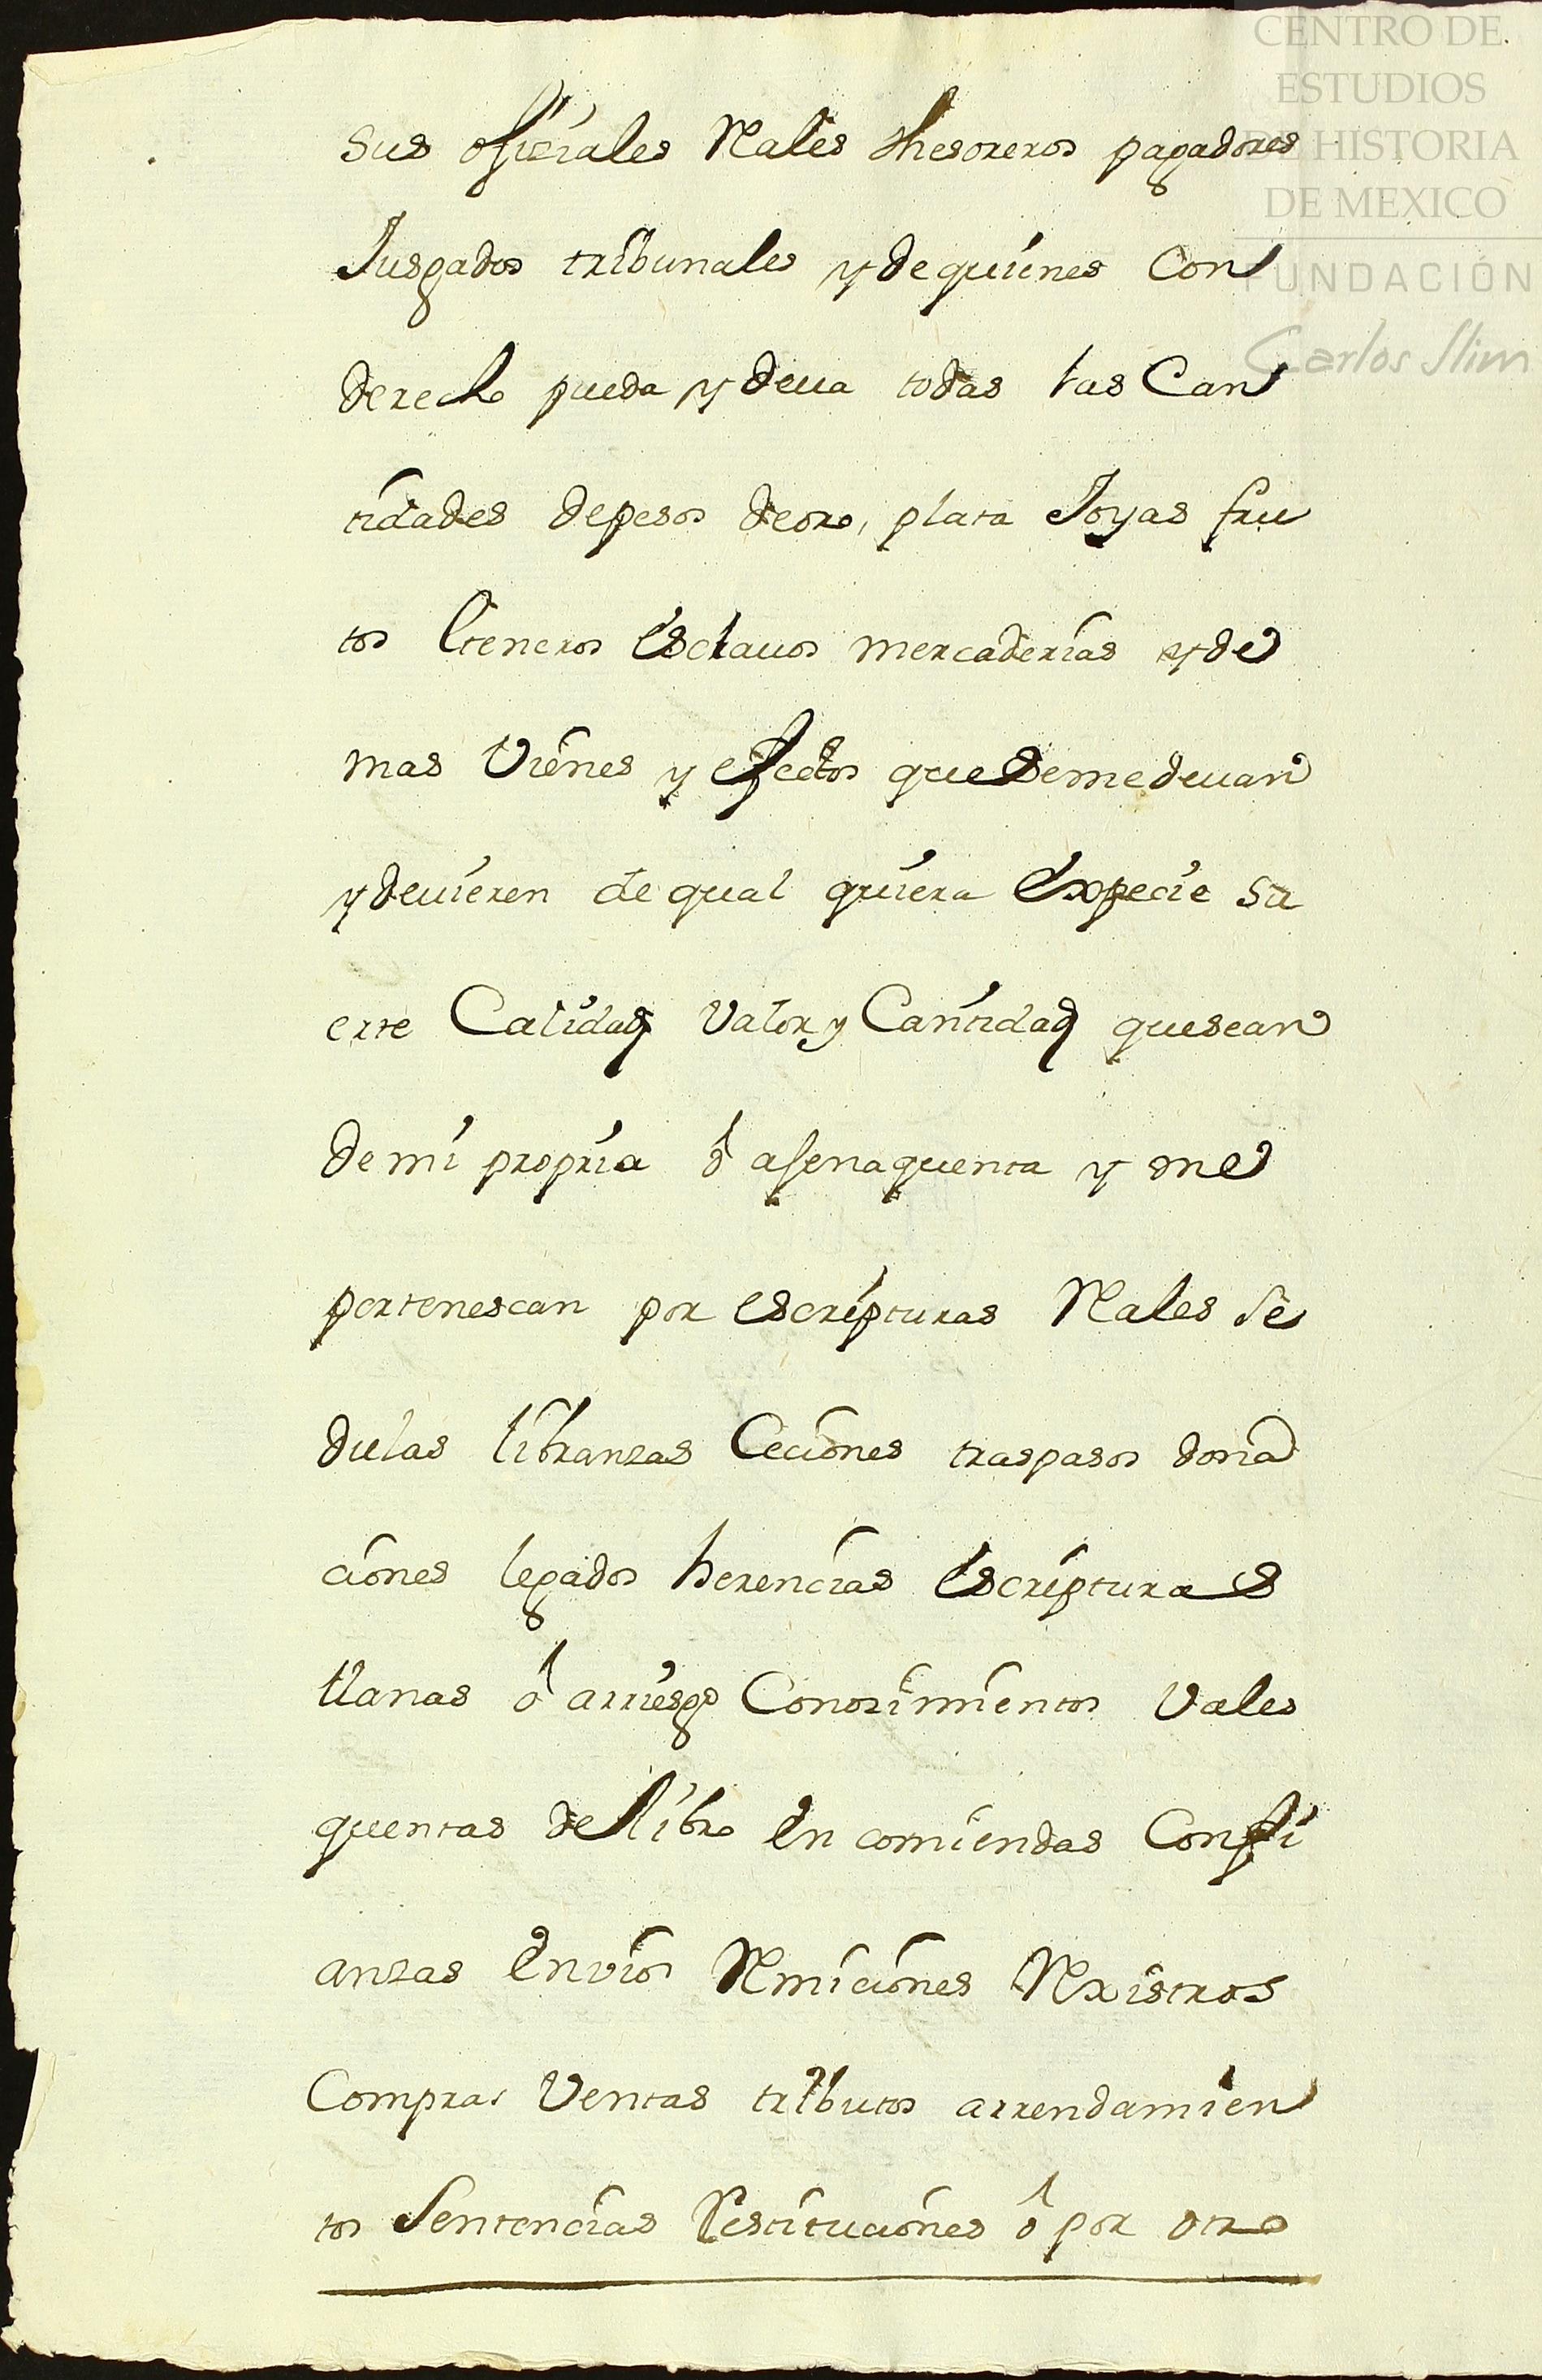 CENTRO DE
ESTUDIOS
DE HISTORIA
DE MEXICO
FUNDACIÓN
Carlos Slim
sus ofiziales Rales thesoreros pagadores
Jusgados tribunales y de quienes Con
derecho pueda y deua todas las Can
tidades de pesos de oro, plata Joyas fru
tos Generos Esclauos mercaderias y de
mas Vienes y efectos que se me deuan
y deuieren de qual quiera Expecie su
erte Calidad Valor y Cantidad que sean
de mi propria ô ajena quenta y me
pertenescan por escripturas Rales Se
dulas libranzas Ceciones traspasos dona
ciones legados herencias Escripturas
llanas ô arriesgo Conozimientos Vales
quentas de libro En comiendas Confi
anzas Envios Rmiciones Rxistros
Compras Ventas tributos arrendamien
tos Sentencias Restituciones ô por otro